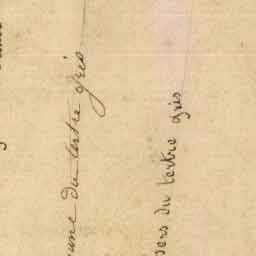 du tertre gris
vers du tertre gris